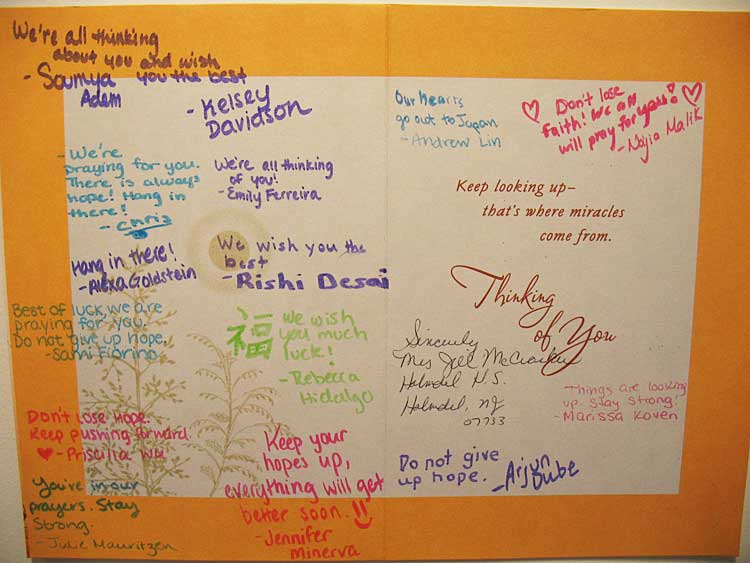 We're all thinking
about you and wish
you the best
- Soumya
Adem
- Kelsey
Davidson
- We're
praying for you.
There is always
hope! Hang in
there!
- Chris
We're all thinking
of you!
- Emily Ferreira
Hang in there!
- Alexa Goldstein
We wish you the
best
- Rishi Desai
Best of luck, we are
praying for you.
Do not give up hope.
- Sami Fiorino
福
We wish
you much
luck!
- Rebecca
Hidalgo
Don't lose hope.
Keep pushing forward.
- Priscilla Wu
You're in our
prayers. Stay
Strong.
- Julie Mauritzen
Keep your
hopes up,
everything will get
better soon.
- Jennifer
Minerva
Our hearts
go out to Japan
- Andrew Lin
Don't lose
faith! We all
will pray for you!
- Malik
Keep looking up–
that's where miracles
come from.
Thinking
of You
Sincerely
Mrs Jill
Holmdel H.S.
Holmdel, NJ
07733
Things are looking
up. Stay strong!
- Marissa Koven
Do not give
up hope.
- Arjun
Dube